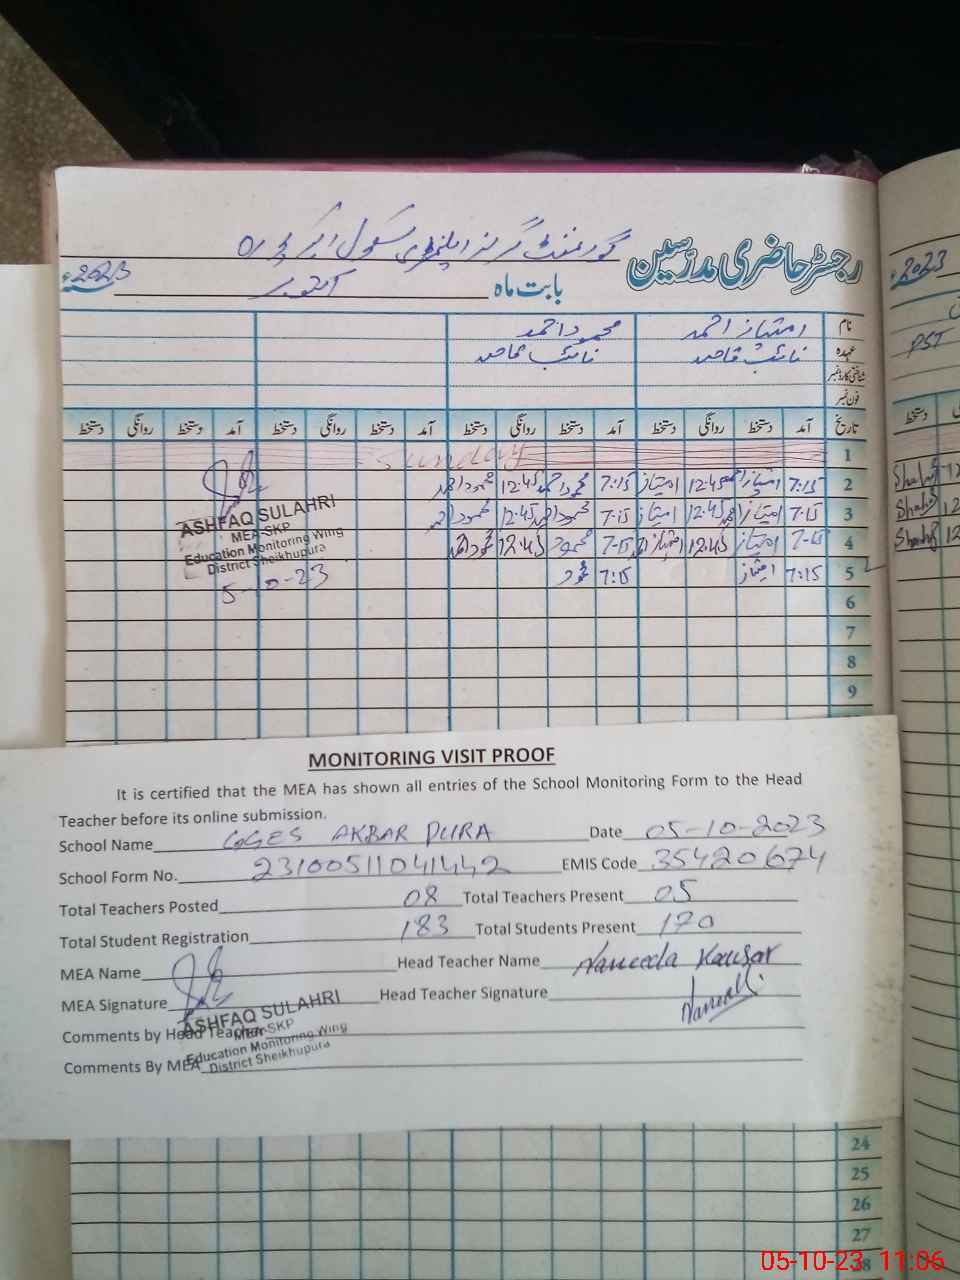 گورنمنٹ گرلز ایلیمنٹری سکول اکبر پورہ
رجسٹر حاضری مدرسین
بابت ماہ اکتوبر 2023ء
2023ء
نام امتیاز احمد محمود احمد
عہدہ نائب قاصد نائب قاصد
PST
شناختی کارڈ نمبر
فون نمبر
تاریخ آمد دستخط روانگی دستخط آمد دستخط روانگی دستخط آمد دستخط روانگی دستخط آمد دستخط روانگی دستخط
دستخط
1 Sunday
2 7:15 امتیاز 12:45 امتیاز 7:15 محمود احمد 12:45 محمود احمد
3 7:15 امتیاز 12:45 امتیاز 7:15 محمود احمد 12:45 محمود احمد
4 7-15 امتیاز 12:45 امتیاز احمد 7-15 محمود 12:45 محمود احمد
5 7:15 امتیاز 7:15 محمود
ASHFAQ SULAHRI
MEA-SKP
Education Monitoring Wing
District Sheikhupura
5-10-23
6
7
8
9
MONITORING VISIT PROOF
It is certified that the MEA has shown all entries of the School Monitoring Form to the Head
Teacher before its online submission.
School Name GGES AKBAR PURA Date 05-10-2023
School Form No. 23100511041442 EMIS Code 35420674
Total Teachers Posted 08 Total Teachers Present 05
Total Student Registration 183 Total Students Present 170
MEA Name Head Teacher Name Naveeda Kausar
MEA Signature Head Teacher Signature
ASHFAQ SULAHRI
Comments by Head Teacher
MEA-SKP
Education Monitoring Wing
Comments By MEA District Sheikhupura
24
25
26
27
28
05-10-23 11:06